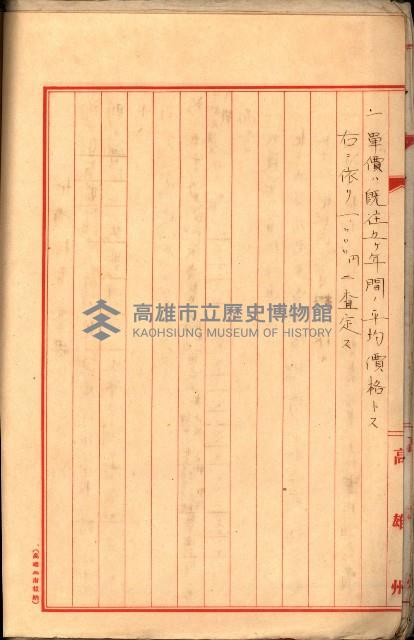 一 單價ハ既往五ヶ年間ノ平均價格トス
右ニ依リ一、〇〇〇円ニ査定ス
高雄州
高雄市立歷史博物館
KAOHSIUNG MUSEUM OF HISTORY